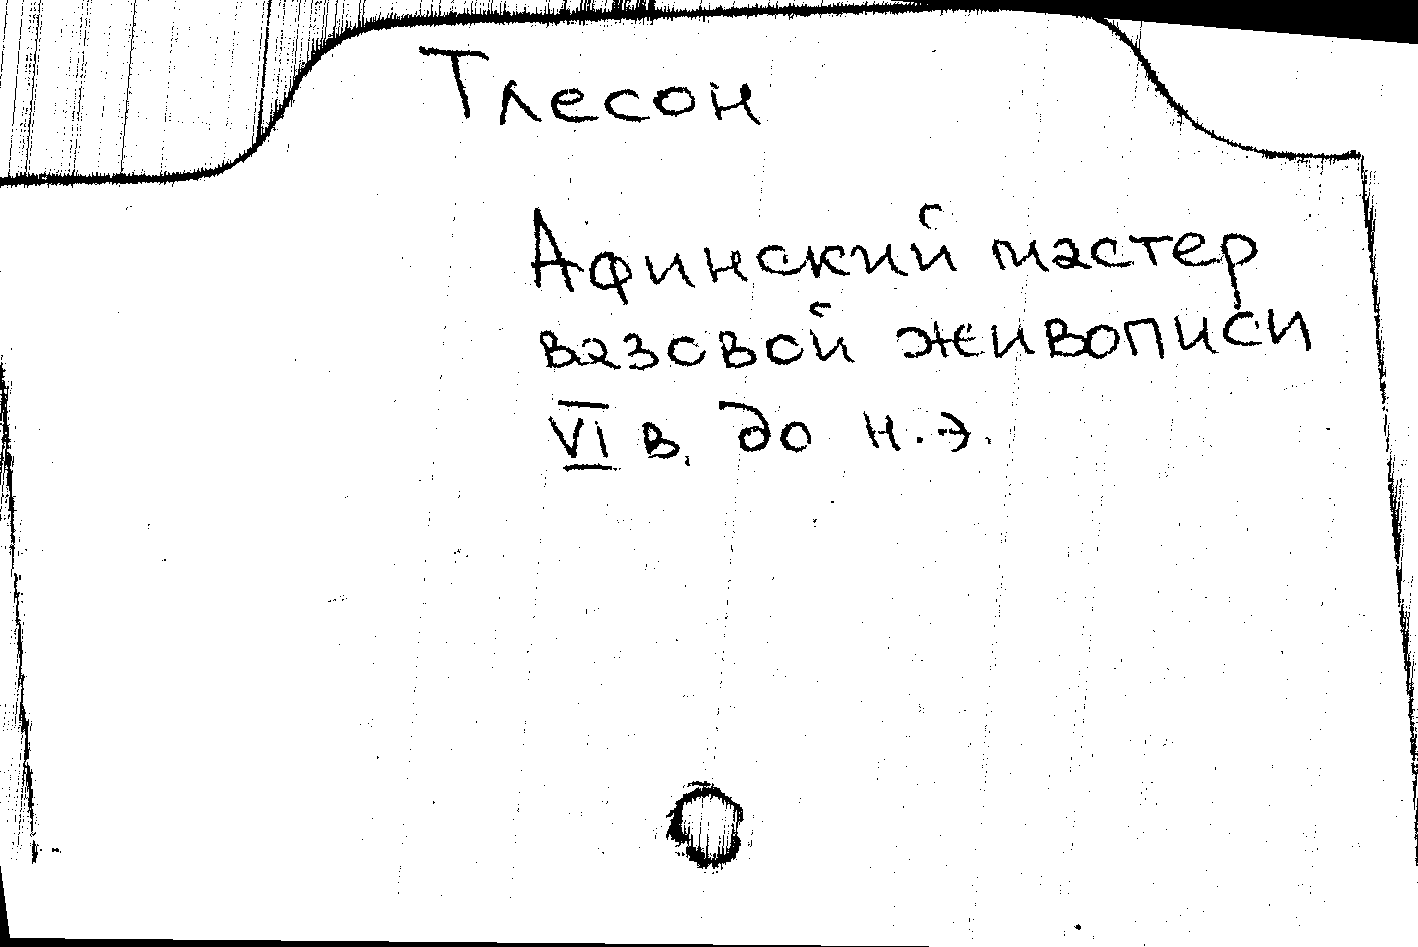 Тлесон
Афинский мастер
вазовой живописи
VI в. до н.э.